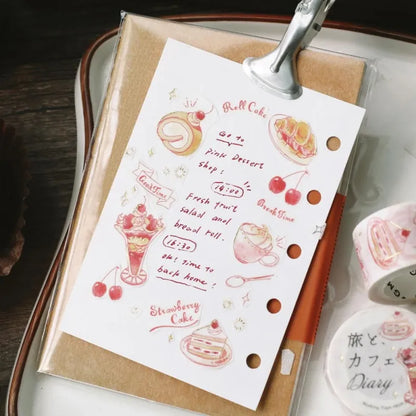 Roll Cake
Go to
Pink Dessert
Shop!
14:00
Fresh fruit
salad and
bread roll.
16:30
ok! time to
back home!
Break Time
Break Time
Strawberry
Cake
旅と、
カフェ
Diary